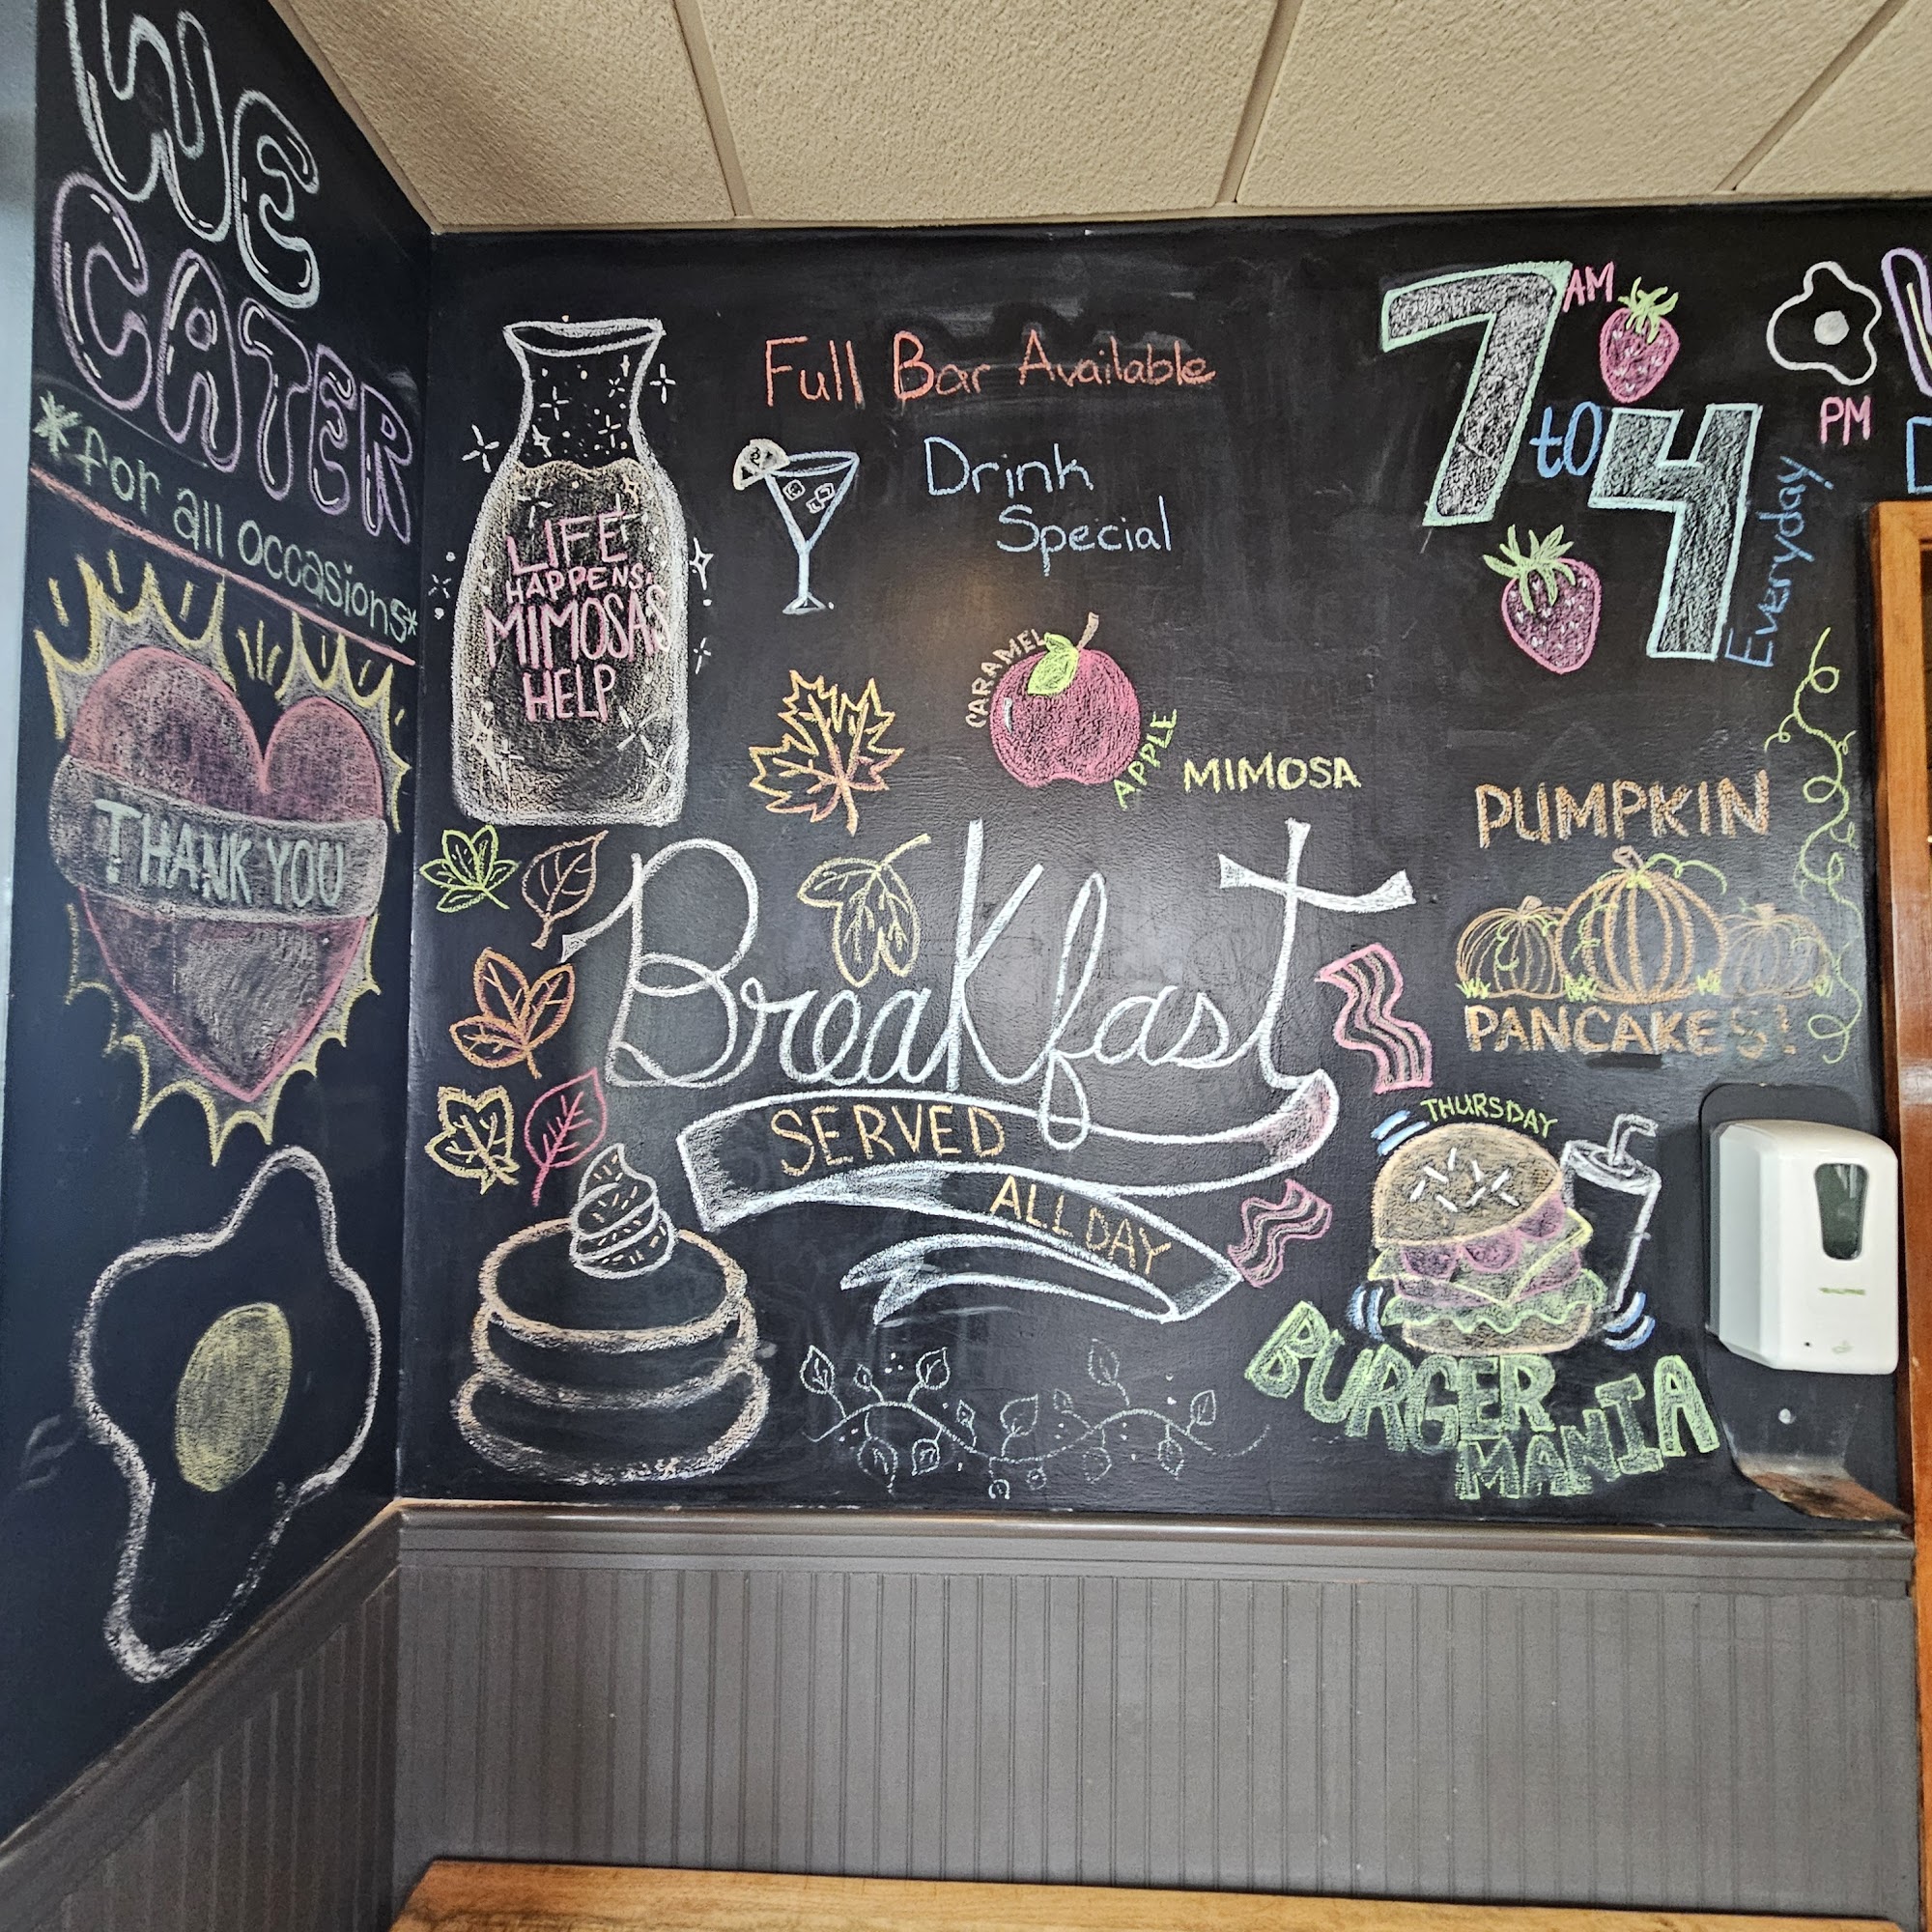 WE
CATER
*for all occasions*
THANK YOU
LIFE
HAPPENS,
MIMOSAS
HELP
Full Bar Available
Drink
Special
CARAMEL
APPLE
MIMOSA
7AM
to
4PM
Everyday
PUMPKIN
PANCAKES!
Breakfast
SERVED
ALL DAY
THURSDAY
BURGER
MANIA